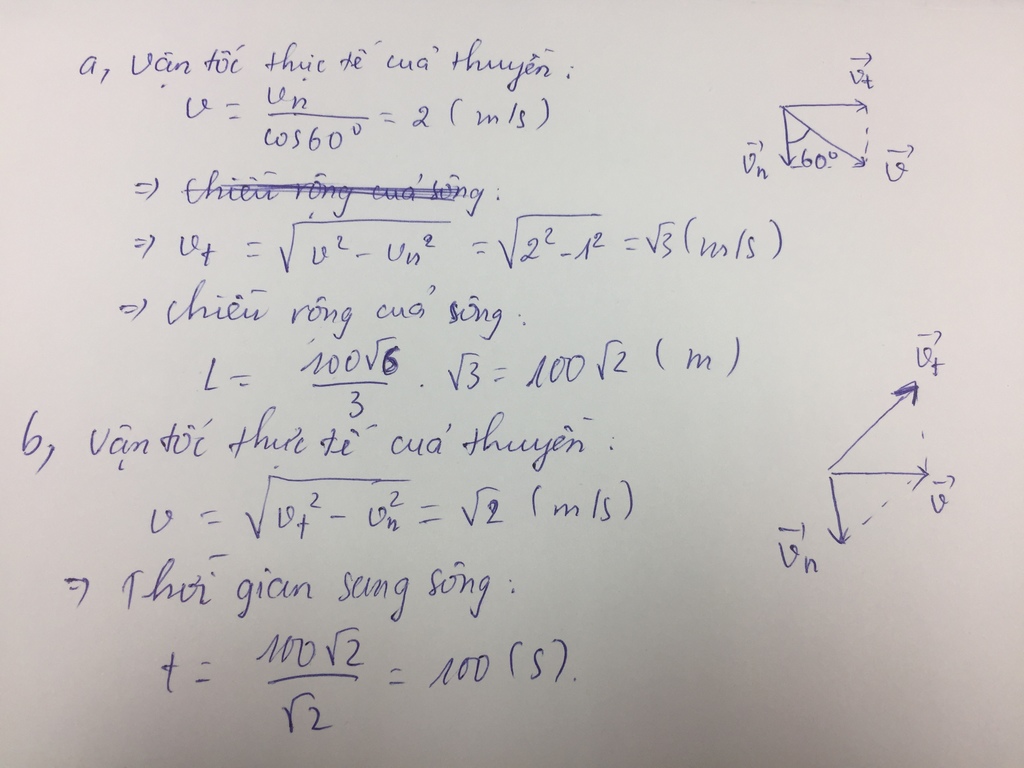 a, Vận tốc thực tế của thuyền:
v = vn / cos60° = 2 (m/s)
=> Chiều rộng của sông:
=> vt = √(v² - vn²) = √(2² - 1²) = √3 (m/s)
=> Chiều rộng của sông:
L = 100√6 / 3 . √3 = 100√2 (m)
b, Vận tốc thực tế của thuyền:
v = √(vt² - vn²) = √2 (m/s)
=> Thời gian sang sông:
t = 100√2 / √2 = 100 (s).
v⃗t
v⃗n 60° v⃗
v⃗t
v⃗
v⃗n